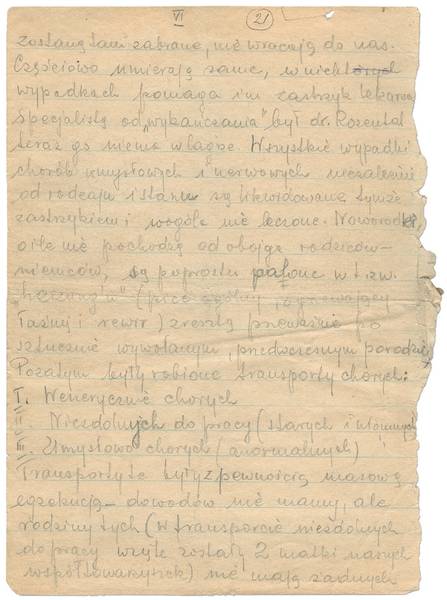 VI
21
zostaną tam zabrane, nie wracają do nas.
Częściowo umierają same, w niektórych
wypadkach pomaga im zastrzyk lekarza
specjalistą od „wykańczania" był dr. Rozental
teraz go niema w lagrze. Wszystkie wypadki
chorób umysłowych i nerwowych niezależnie
od rodzaju i stanu są likwidowane tymże
zastrzykiem i wogóle nie leczone. Noworodki
o ile nie pochodzą od obojga rodziców-
niemców, są poprostu palone w t.zw.
(piec ogólny, ogrzewający
łaźnię i rewir) zresztą przeważnie po
sztucznie wywołanym, przedwczesnym porodzie
Pozatym były robione transporty chorych:
I. Wenerycznie chorych
II. Niezdolnych do pracy (starych i ułomnych)
III. Umysłowo chorych (anormalnych)
Transporty te były z pewnością masową
egzekucją – dowodów nie mamy, ale
rodziny tych (w transporcie niezdolnych
do pracy wzięte zostały 2 matki naszych
współtowarzyszek) nie mają żadnych